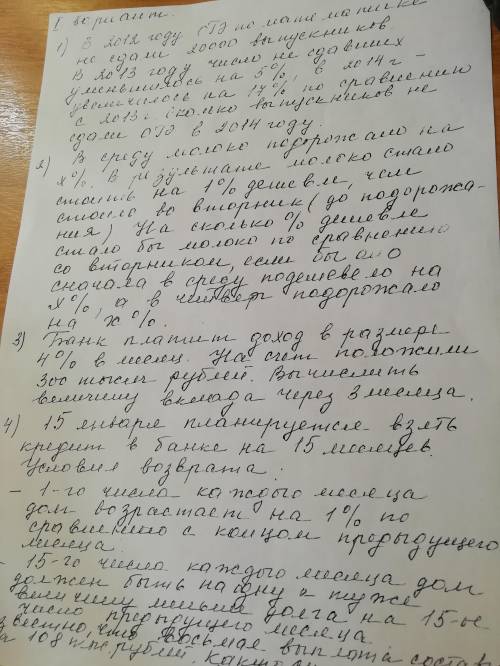 I вариант.
1) В 2012 году ОГЭ по математике
не сдали 20000 выпускников.
В 2013 году число не сдавших
уменьшилось на 5%, в 2014 г –
увеличилось на 17% по сравнению
с 2013 г. Сколько выпускников не
сдали ОГЭ в 2014 году.
2) В среду молоко подорожало на
x%. В результате молоко стало
стоить на 1% дешевле, чем
стоило во вторник (до подорожа-
ния) На сколько % дешевле
стало бы молоко по сравнению
со вторником, если бы оно
сначала в среду подешевело на
x%, а в четверг подорожало
на x%.
3) Банк платит доход в размере
4% в месяц. На счёт положили
300 тысяч рублей. Вычислить
величину вклада через 3 месяца.
4) 15 января планируется взять
кредит в банке на 15 месяцев.
Условия возврата:
– 1-го числа каждого месяца
долг возрастает на 1% по
сравнению с концом предыдущего
месяца.
– 15-го числа каждого месяца долг
должен быть на одну и ту же
величину меньше долга на 15-ое
число предыдущего месяца
что восьмая выплата
108 рублей.